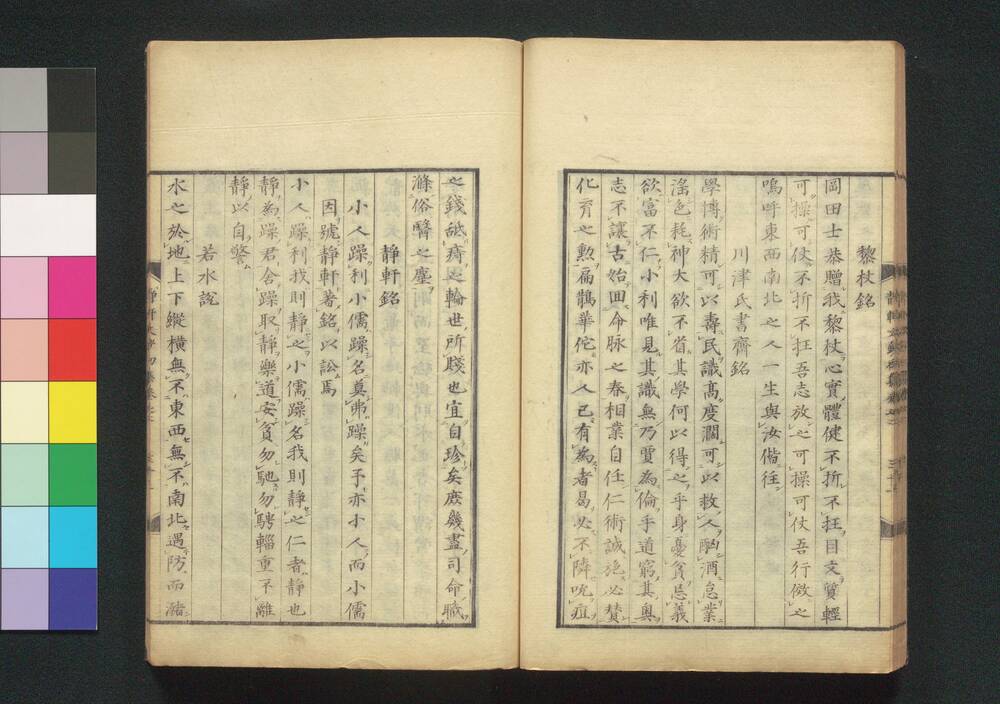 黎杖銘
岡田士恭贈我黎杖心實體健不折不抂目文質輕
可操可仗不折不抂吾志放之可操可仗吾行倣之
嗚呼東西南北之人一生與汝偕往
川津氏書齋銘
學博術精可以壽民識高度濶可以救人酗酒怠業
淫色耗神大欲不省其學何以得之乎身憂貧忘義
欲富不仁小利唯見其識無乃賈為倫乎道窮其奥
志不讓古始回命脉之春相業自任仁術誠施必賛
化育之勲扁鵲華佗亦人已有為者曷必不隣吮疽
之錢舐痔之輪世所賤也宜自珍矣庶幾盡司命職
滌俗醫之塵
静軒銘
小人躁利小儒躁名莫弗躁矣予亦小人而小儒
因號静軒著銘以訟焉
小人躁利我則静之小儒躁名我則静之仁者静也
静為躁君舍躁取静樂道安貧勿馳勿騁輜重不離
静以自警
若水説
水之於地上下縱横無不東西無不南北遇防而瀦